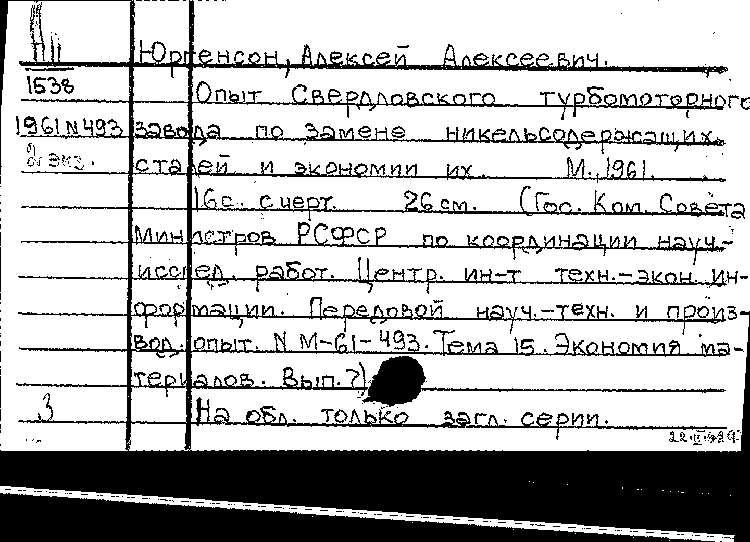 Юргенсон, Алексей Алексеевич.
1538 Опыт Свердловского турбомоторного
1961 N 493 завода по замене никельсодержащих
2 экз. сталей и экономии их. М., 1961.
16с. с черт. 26 см. (Гос. Ком. Совета
Министров РСФСР по координации науч.-
исслед. работ. Центр. ин-т техн.-экон. ин-
формации. Передовой науч.-техн. и произ-
вод. опыт. N М-61-493. Тема 15. Экономия ма-
териалов. Вып. 7)
3 На обл. только загл. серии.